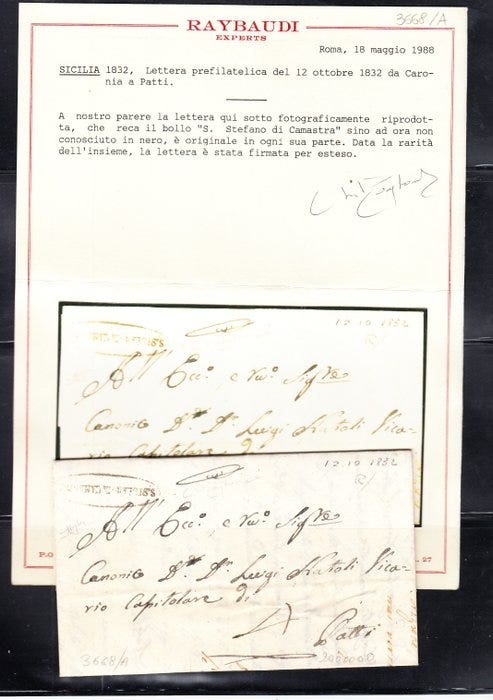 3668/A
RAYBAUDI
EXPERTS
Roma, 18 maggio 1988
SICILIA 1832, Lettera prefilatelica del 12 ottobre 1832 da Caro-
nia a Patti.
A nostro parere la lettera qui sotto fotograficamente riprodot-
ta, che reca il bollo "S. Stefano di Camastra" sino ad ora non
conosciuto in nero, è originale in ogni sua parte. Data la rarità
dell'insieme, la lettera è stata firmata per esteso.
12 10 1832
All' Ecc.º e
Canonico Luigi Natoli Vica-
rio Capitolare di
P.O
. 27
12 10 1832
All' Ecc.º e
Canonico Luigi Natoli Vica-
rio Capitolare di
Patti
3668/A